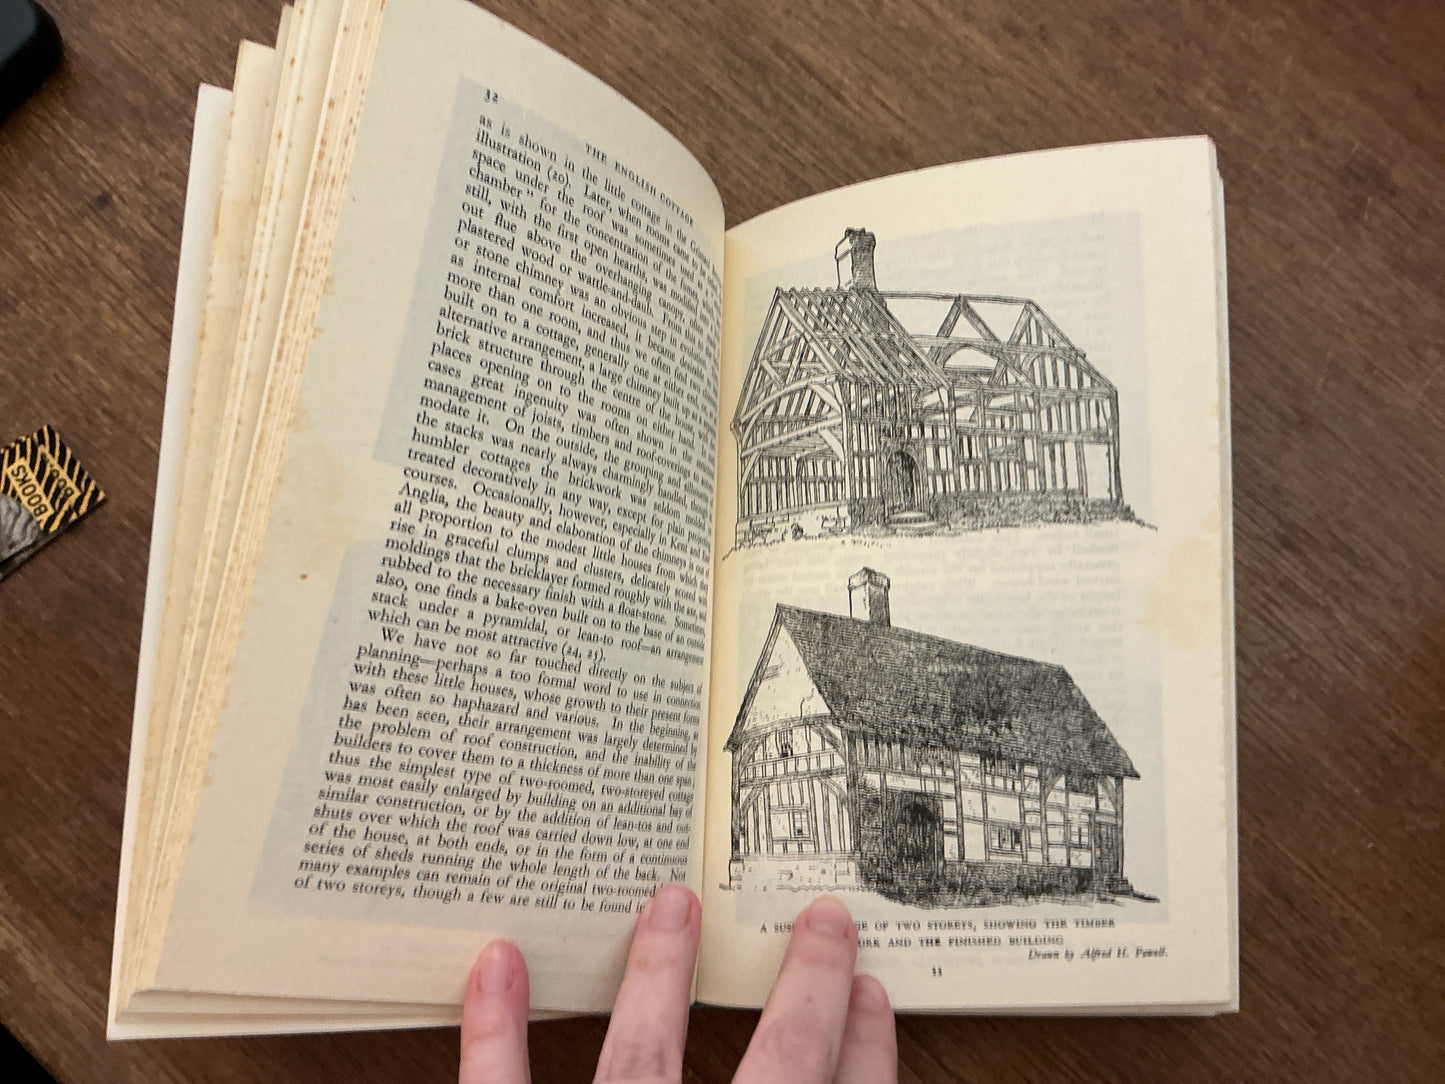 32
THE ENGLISH COTTAGE
as is shown in the little cottage in the
illustration (20). Later, when rooms came
space under the roof was sometimes used as
chamber" for the concentration of the
still, with the first open hearths, was modified
out flue above the overhanging canopy, often
plastered wood or wattle-and-daub. From this
or stone chimney was an obvious step in
as internal comfort increased, it became desirable
more than one room, and thus we often find two
built on to a cottage, generally one at either end, or, as
alternative arrangement, a large chimney built up as a
brick structure through the centre of the house, with
places opening on to the rooms on either hand. In
cases great ingenuity was often shown in the
management of joists, timbers and roof-coverings to
modate it. On the outside, the grouping and
the stacks was nearly always charmingly handled, though
humbler cottages the brickwork was seldom
treated decoratively in any way, except for plain projecting
courses. Occasionally, however, especially in Kent and
Anglia, the beauty and elaboration of the chimneys is out of
all proportion to the modest little houses from which they
rise in graceful clumps and clusters, delicately scored with
moldings that the bricklayer formed roughly with the axe, and
rubbed to the necessary finish with a float-stone. Sometimes,
also, one finds a bake-oven built on to the base of an outside
stack under a pyramidal, or lean-to roof—an arrangement
which can be most attractive (24, 25).
We have not so far touched directly on the subject of
planning—perhaps a too formal word to use in connection
with these little houses, whose growth to their present forms
was often so haphazard and various. In the beginning, as
has been seen, their arrangement was largely determined by
the problem of roof construction, and the inability of the
builders to cover them to a thickness of more than one span;
thus the simplest type of two-roomed, two-storeyed cottage
was most easily enlarged by building on an additional bay of
similar construction, or by the addition of lean-tos and out-
shuts over which the roof was carried down low, at one end
of the house, at both ends, or in the form of a continuous
series of sheds running the whole length of the back. Not
many examples can remain of the original two-roomed
of two storeys, though a few are still to be found
A OF TWO STOREYS, SHOWING THE TIMBER
AND THE FINISHED BUILDING
Drawn by Alfred H. Powell.
33
BOOKS